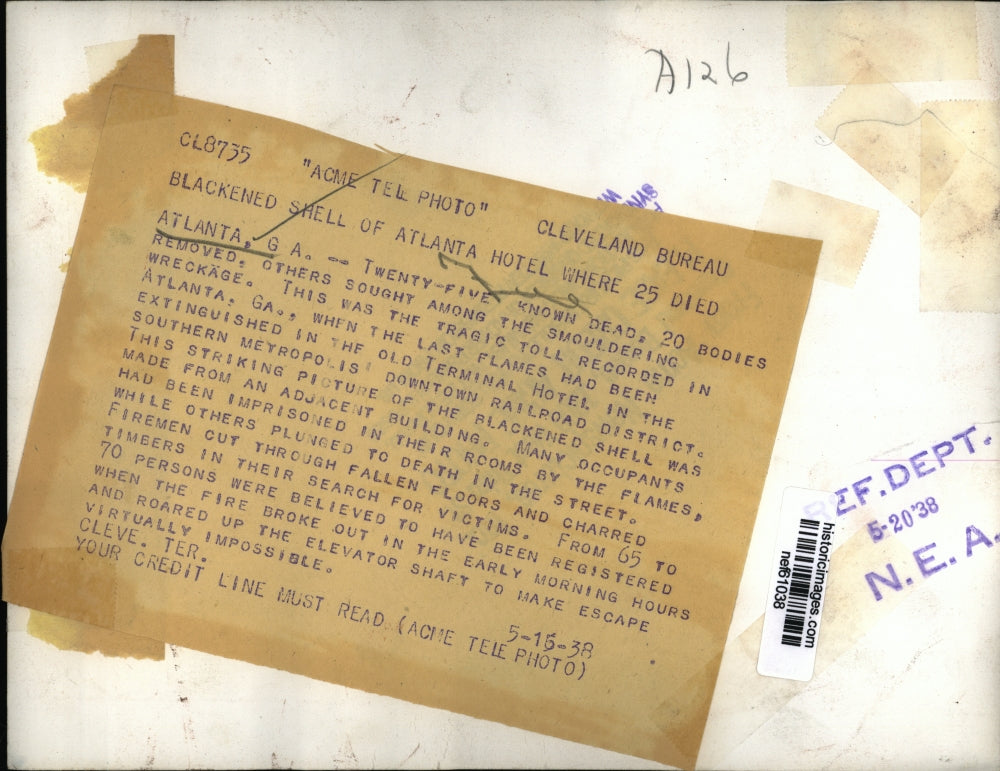 A126
CL8735 "ACME TELE PHOTO" CLEVELAND BUREAU
BLACKENED SHELL OF ATLANTA HOTEL WHERE 25 DIED
ATLANTA, G A. -- TWENTY-FIVE KNOWN DEAD, 20 BODIES
REMOVED. OTHERS SOUGHT AMONG THE SMOULDERING
WRECKAGE. THIS WAS THE TRAGIC TOLL RECORDED IN
ATLANTA, GA., WHEN THE LAST FLAMES HAD BEEN
EXTINGUISHED IN THE OLD TERMINAL HOTEL IN THE
SOUTHERN METROPOLIS' DOWNTOWN RAILROAD DISTRICT.
THIS STRIKING PICTURE OF THE BLACKENED SHELL WAS
MADE FROM AN ADJACENT BUILDING. MANY OCCUPANTS
HAD BEEN IMPRISONED IN THEIR ROOMS BY THE FLAMES,
WHILE OTHERS PLUNGED TO DEATH IN THE STREET.
FIREMEN CUT THROUGH FALLEN FLOORS AND CHARRED
TIMBERS IN THEIR SEARCH FOR VICTIMS. FROM 65 TO
70 PERSONS WERE BELIEVED TO HAVE BEEN REGISTERED
WHEN THE FIRE BROKE OUT IN THE EARLY MORNING HOURS
AND ROARED UP THE ELEVATOR SHAFT TO MAKE ESCAPE
VIRTUALLY IMPOSSIBLE.
CLEVE. TER. 5-16-38
YOUR CREDIT LINE MUST READ (ACME TELE PHOTO)
REF. DEPT.
5-20'38
N. E. A.
historicimages.com
nef61038